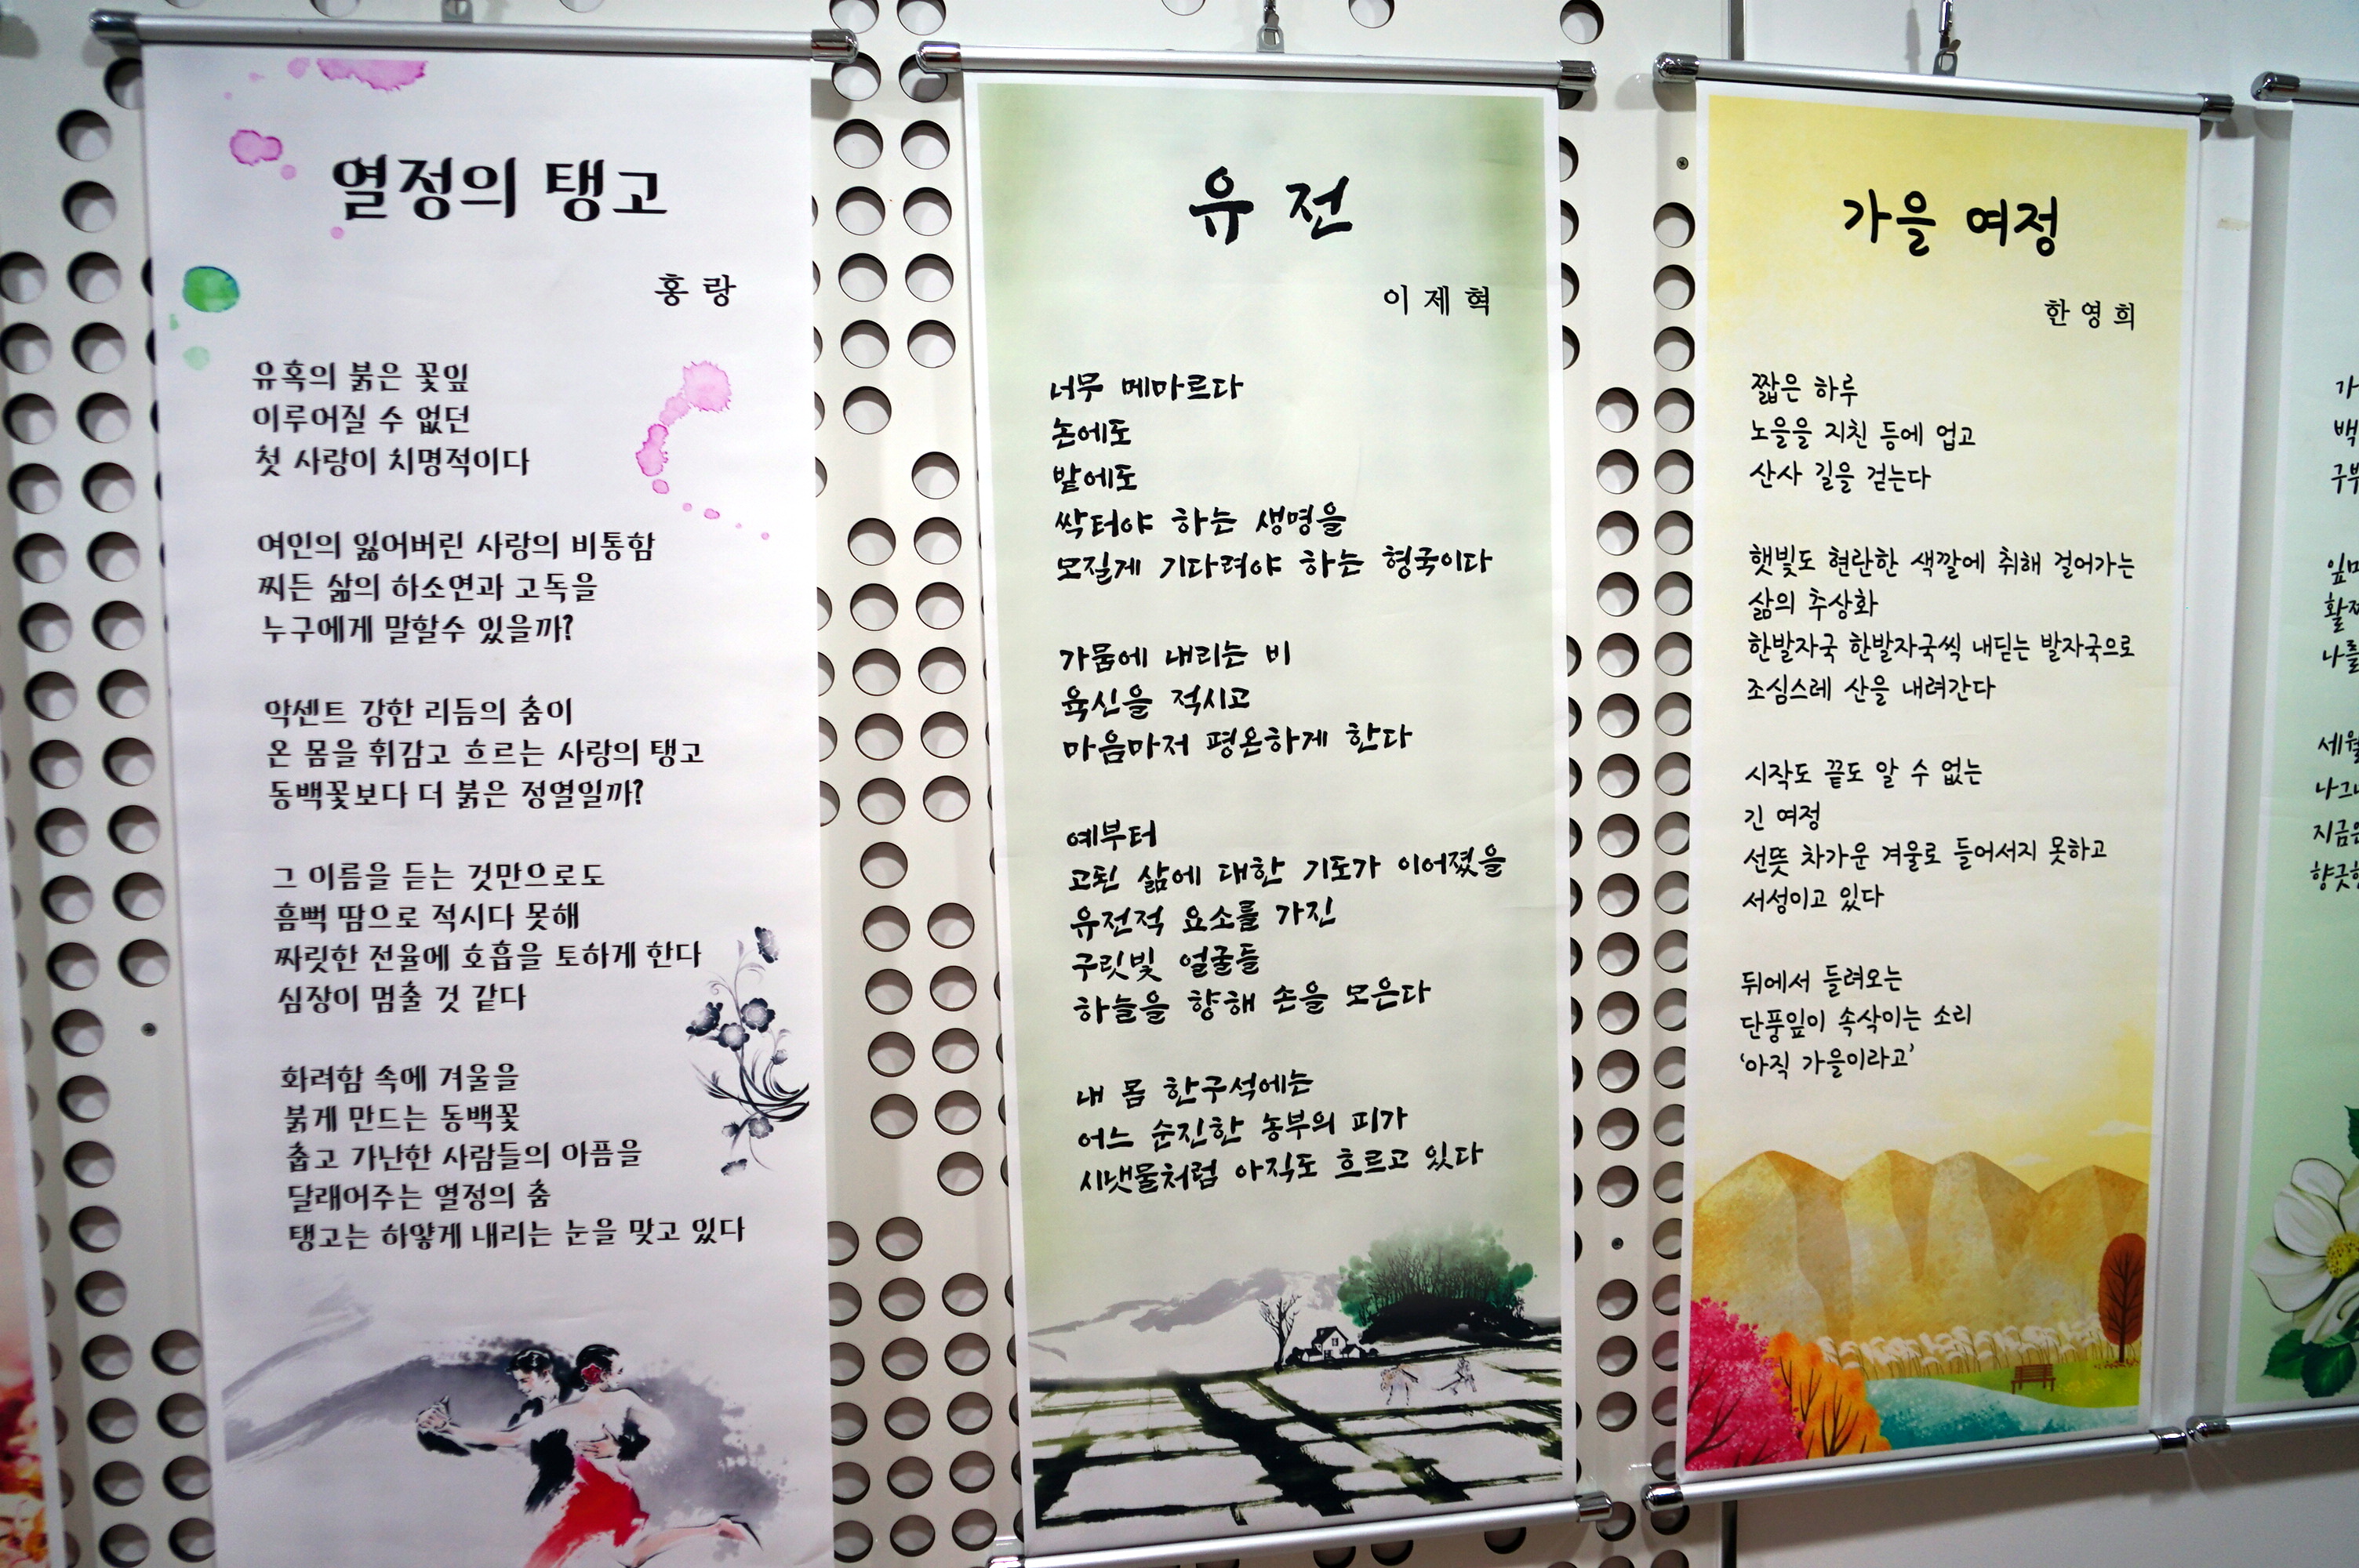 열정의 탱고
홍 랑
유혹의 붉은 꽃잎
이루어질 수 없던
첫 사랑이 치명적이다
여인의 잃어버린 사랑의 비통함
찌든 삶의 하소연과 고독을
누구에게 말할수 있을까?
악센트 강한 리듬의 춤이
온 몸을 휘감고 흐르는 사랑의 탱고
동백꽃보다 더 붉은 정열일까?
그 이름을 듣는 것만으로도
흠뻑 땀으로 적시다 못해
짜릿한 전율에 호흡을 토하게 한다
심장이 멈출 것 같다
화려함 속에 겨울을
붉게 만드는 동백꽃
춥고 가난한 사람들의 아픔을
달래어주는 열정의 춤
탱고는 하얗게 내리는 눈을 맞고 있다
유 전
이 제 혁
너무 메마르다
논에도
밭에도
싹터야 하는 생명을
모질게 기다려야 하는 형국이다
가뭄에 내리는 비
육신을 적시고
마음마저 평온하게 한다
예부터
고된 삶에 대한 기도가 이어졌을
유전적 요소를 가진
구릿빛 얼굴들
하늘을 향해 손을 모은다
내 몸 한구석에는
어느 순진한 농부의 피가
시냇물처럼 아직도 흐르고 있다
가을 여정
한 영 희
짧은 하루
노을을 지친 등에 업고
산사 길을 걷는다
햇빛도 현란한 색깔에 취해 걸어가는
삶의 추상화
한발자국 한발자국씩 내딛는 발자국으로
조심스레 산을 내려간다
시작도 끝도 알 수 없는
긴 여정
선뜻 차가운 겨울로 들어서지 못하고
서성이고 있다
뒤에서 들려오는
단풍잎이 속삭이는 소리
‘아직 가을이라고’
가
백
구부
나를
세월
나그
지금은